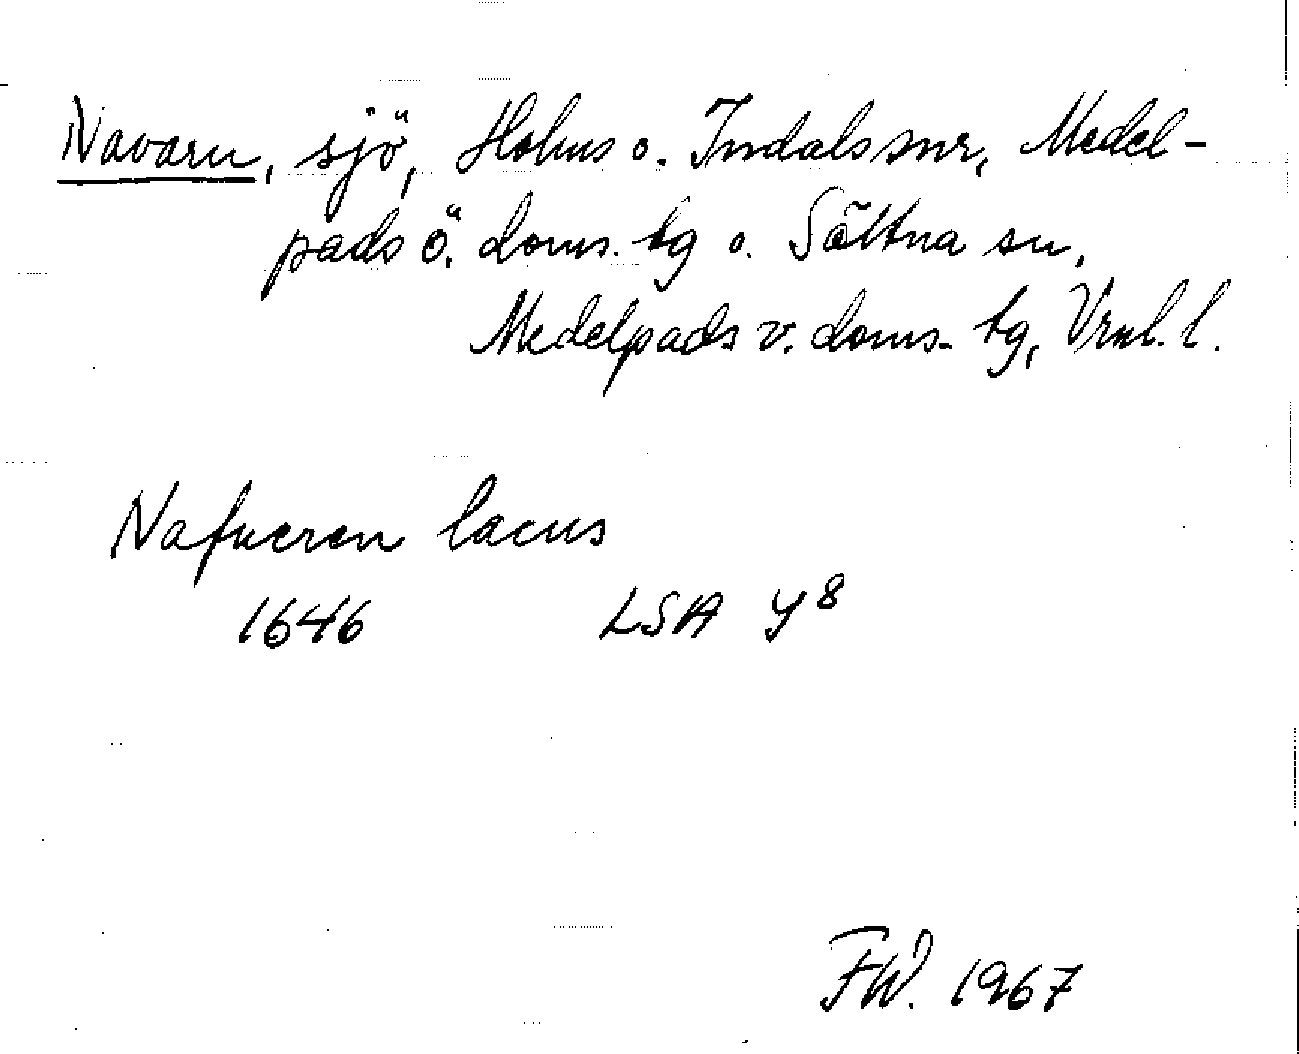 Navarn, sjö, Holms o. Indals snr, Medel-
pads ö. doms. tg o. Sättna sn,
Medelpads v. doms. tg, Vrnl. l.
Nafueren lacus
1646 LSA Y8
FW. 1967